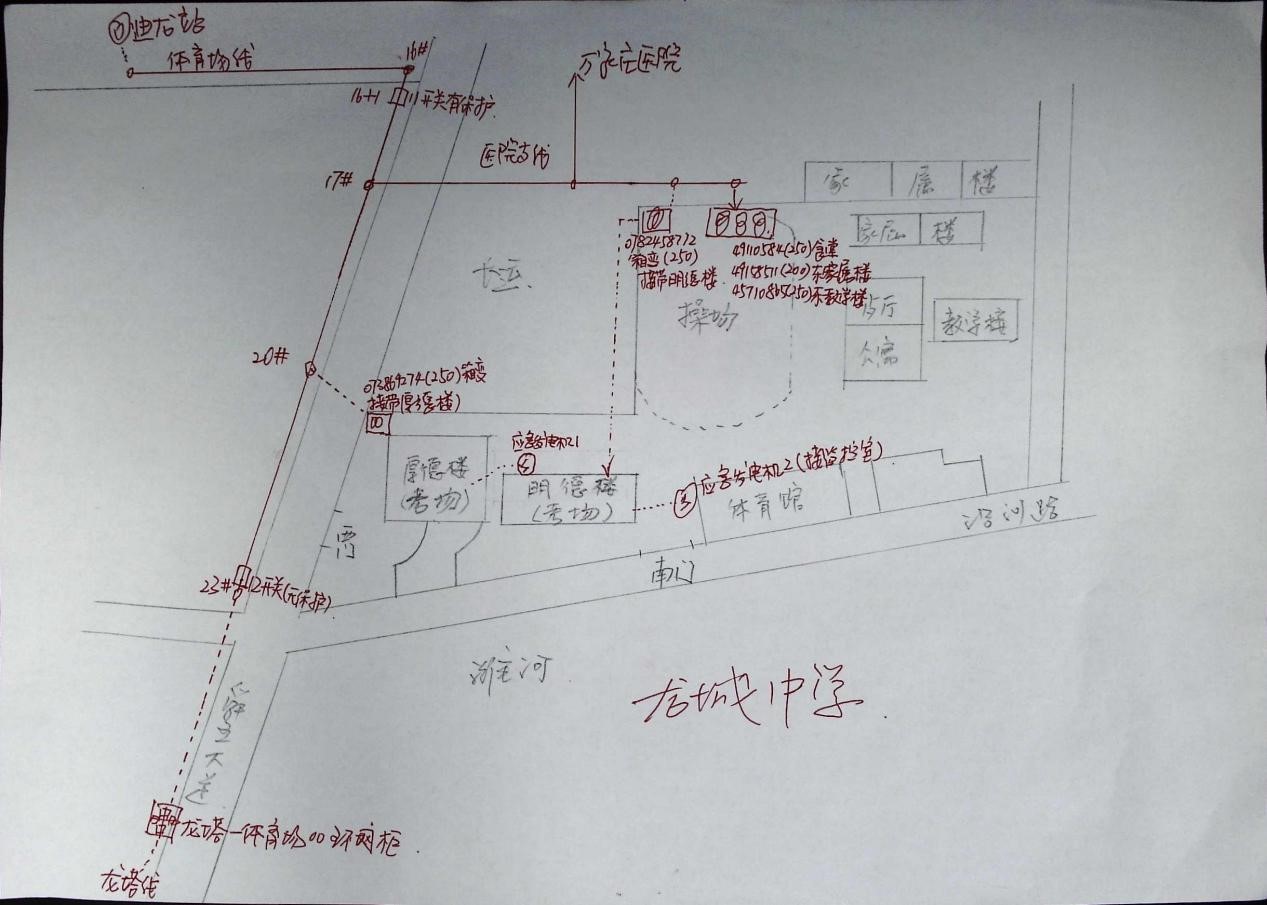 体育场线
16#
16+1
11开关有保护
万家庄医院
医院支线
17#
家 属 楼
家属 楼
0782458712
箱变(250)
接带明德楼
49110584(250)食堂
4915851(200)东家属楼
45710865(250)东教学楼
操场
教学楼
公寓
20#
073869274(250)箱变
接带厚德楼)
应急发电机1
厚德楼
(考场)
明德楼
(考场)
应急发电机2(接监控室)
体育馆
沿河路
西门
南门
23#
12开关(无保护)
河
大道
龙城中学
龙塔一体育场001环网柜
龙塔线